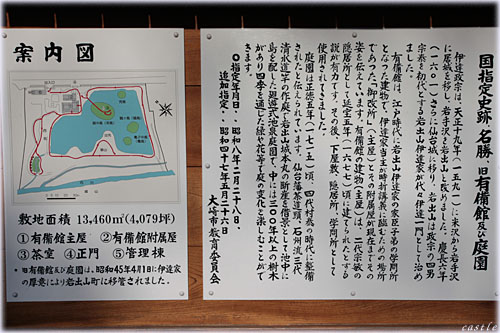 国指定史跡・名勝 旧有備館及び庭園
伊達政宗は、天正十九年（一五九一）に米沢から岩手沢
に居城を移し、岩手沢を岩出山と改めました。慶長六年
（一六〇一）さらに仙台城に移り、岩出山は政宗の四男
宗泰を初代とする岩出山伊達家が代々（伊達一門）として治め
ました。
有備館は、江戸時代に岩出山伊達家の家臣子弟の学問所
となった建物で、伊達家当主が時折講義に臨むための場所
であった、「御改所」（主屋）とその附属屋が現在までその
姿を伝えています。有備館の建物（主屋）は、二代宗敏の
隠居所として延宝五年（一六七七）頃に建てられたとする
説が有力です。その後、下屋敷、隠居所、学問所として
使用されてきました。
庭園は正徳五年（一七一五）頃、四代村泰の時代に整備
されたと伝えられています。仙台藩茶道頭・石州流三代
清水道竿の作庭で、岩出山城本丸の断崖を借景として池中に
島を配した廻遊式池泉庭園で、中には三〇〇年以上の樹木
があり四季を通じた緑や花等で庭の変化を楽しむことがで
きます。
◎指定年月日・・昭和八年二月二十八日
追加指定・・昭和四十七年五月二十六日
大崎市教育委員会
案内図
敷地面積 13,460㎡(4,079坪)
①有備館主屋 ②有備館附属屋
③茶室 ④正門 ⑤管理棟
・旧有備館及び庭園は、昭和45年4月1日に伊達家
の厚意により岩出山町に移管されました。
castle